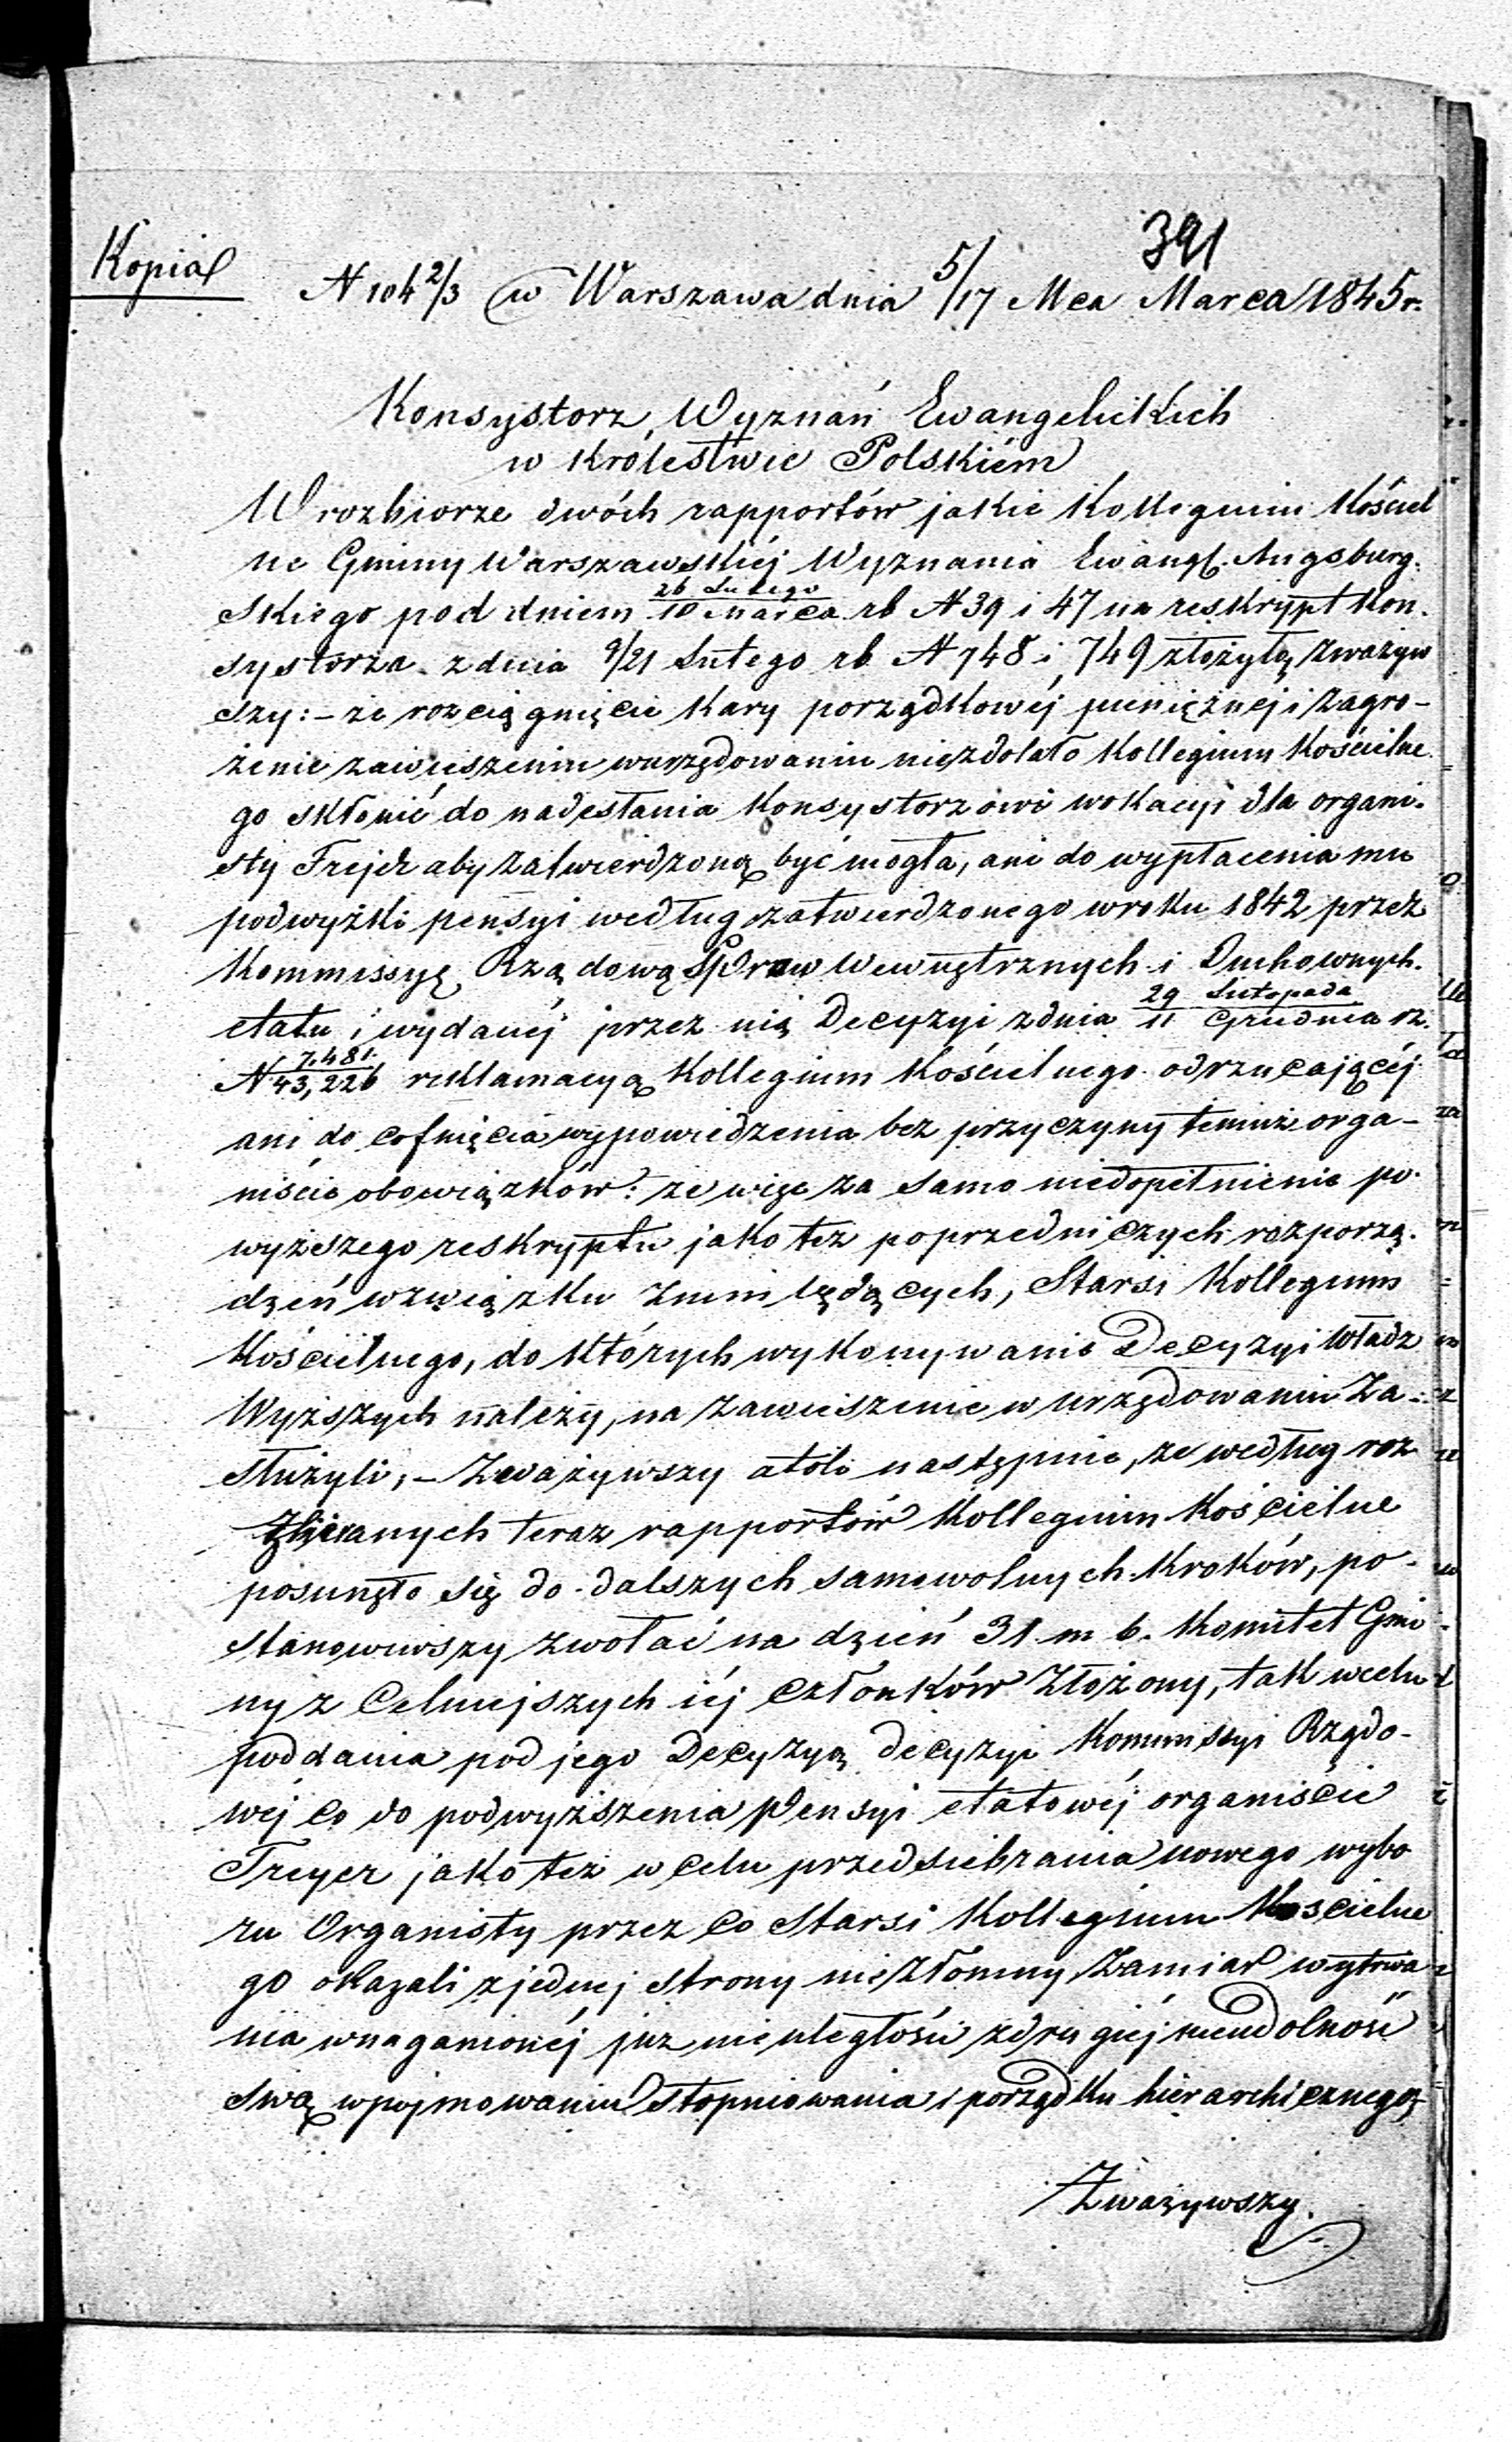 391
Kopia
N 104 2/3 w Warszawa dnia 5/17 Mca Marca 1845 r.
Konsystorz Wyznań Ewangelickich
w Królestwie Polskiém
W rozbiorze dwóch rapportów jakie Kollegium Kościel
ne Gminy Warszawskiéj Wyznania Ewangl. Augsburg.
skiego pod dniem 26 Lutego/10 Marca rb N 39 i 47 na reskrypt Kon.
systorza z dnia 9/21 Lutego rb N 748 i 749 złożyło, zważyw
szy: – że rozciągnięcie kary porządkowéj pieniężnej i zagro–
żenie zawieszeniem w urzędowaniu niezdolało Kollegium Kościelne
go skłonić do nadesłania Konsystorzowi wokacyi dla organi.
sty Frejer aby zatwierdzoną być mogła, ani do wypłacenia mu
podwyżki pensyi według zatwierdzonego w roku 1842 przez
Kommissyę Rządową Spraw Wewnętrznych i Duchownych.
etatu i wydanéj przez nią Decyzyi z dnia 29 Listopada/11 Grudnia rz.
N 7,481/43,226 reklamacyą Kollegium Kościelnego odrzucającéj
ani do cofnięcia wypowiedzenia bez przyczyny temuż orga–
niście obowiązków: że więc za samo niedopełnienie po.
wyższego reskryptu jako też poprzedniczych rozporzą.
dzeń w związku z nim będących, Starsi Kollegium
Kościelnego, do których wykonywanie Decyzyi Władz
Wyższych należy, na zawieszenie w urzędowaniu za–
służyli; – Zważywszy atoli następnie, że według roz
zbieranych teraz rapportów Kollegium Kościelne
posunęło się do dalszych samowolnych kroków, po–
stanowiwszy zwołać na dzień 31 m b. Komitet Gmi
ny z Celniejszych iéj członków złożony, tak w celu
poddania pod jego Decyzyą decyzyi Kommissyi Rządo–
wéj co do podwyższenia pensyi etatowéj organiście
Freyer jako też w celu przedsiebrania nowego wybo
ru Organisty przez co Starsi Kollegium Kościelne
go okazali z jednej strony niezłomny zamiar wytrwa
nia w naganionéj już nieuległości z drugiéj nieudolność
swą w pojmowaniu stopniowania i porządku hierarchicznego,
Zważywszy.